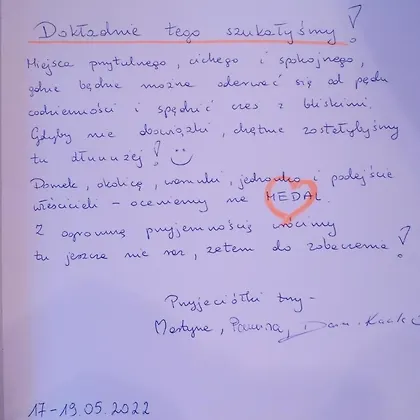 Dokładnie tego szukałyśmy!
Miejsca przytulnego, cichego i spokojnego,
gdzie będzie można oderwać się od pędu
codzienności i spędzić czas z bliskimi.
Gdyby nie obowiązki, chętnie zostałybyśmy
tu dłuuużej! :)
Domek, okolicę, warunki, jedzonko i podejście
właścicieli – oceniamy na MEDAL.
Z ogromną przyjemnością wrócimy
tu jeszcze nie raz, zatem do zobaczenia!
Przyjaciółki trzy –
Martyna, Paulina,
17-19.05.2022